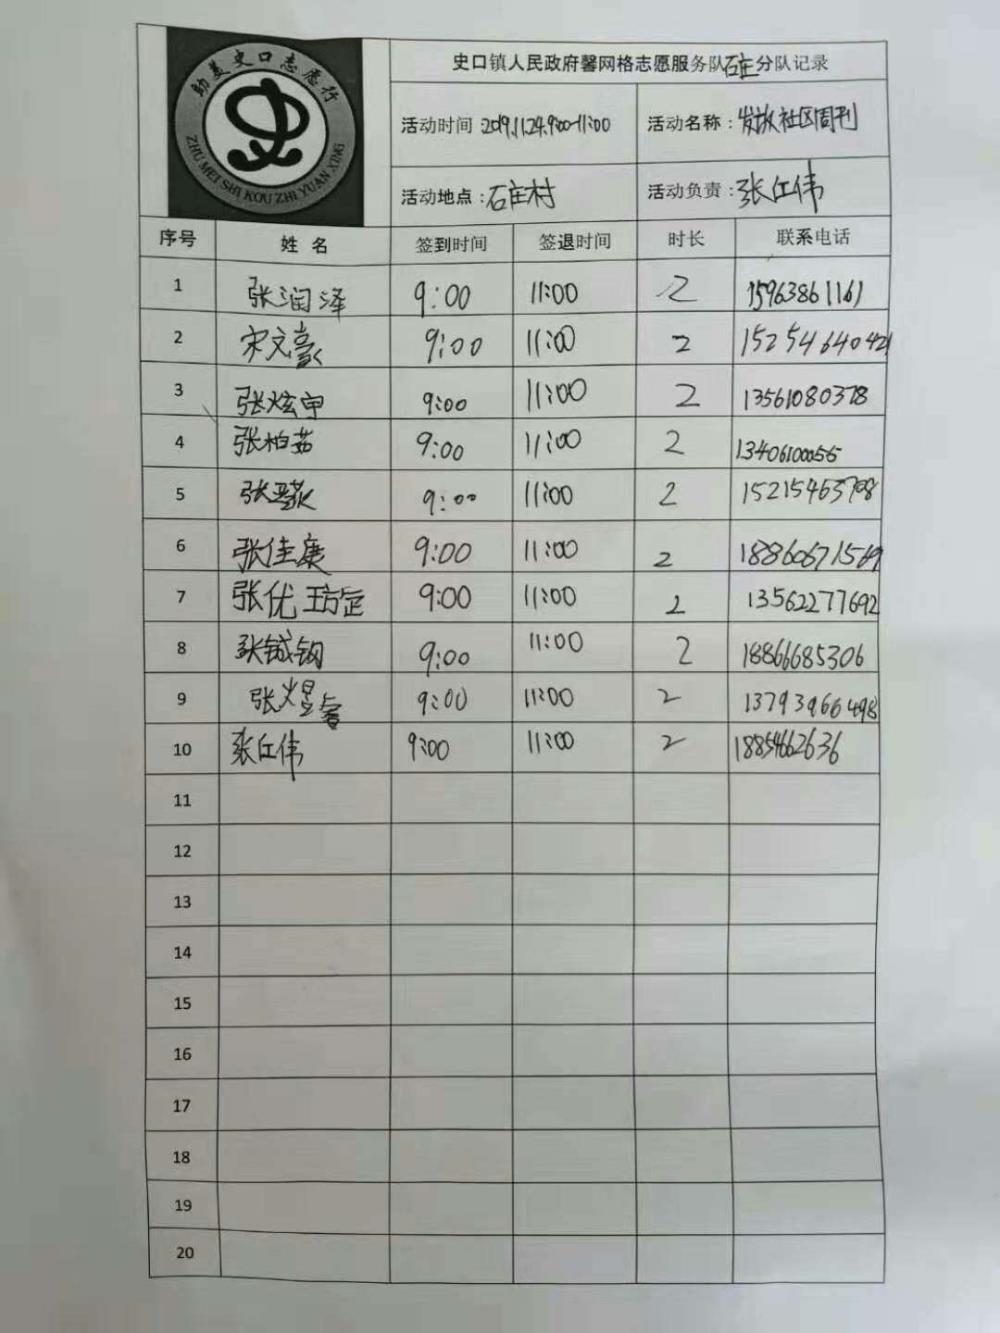 助美史口志愿行
ZHU MEI SHI KOU ZHI YUAN XING
史口镇人民政府馨网格志愿服务队石庄分队记录
活动时间 2019.11.24.9:00-11:00 活动名称:发放社区周刊
活动地点:石庄村 活动负责:张仕伟
序号 姓名 签到时间 签退时间 时长 联系电话
1 张润泽 9:00 11:00 2 15963861161
2 宋文豪 9:00 11:00 2 15254640421
3 张炫甲 9:00 11:00 2 13561080378
4 张柏茹 9:00 11:00 2 13406100055
5 张 9:00 11:00 2 15215463798
6 张佳康 9:00 11:00 2 18860671569
7 张优 9:00 11:00 2 13562277692
8 张铖钢 9:00 11:00 2 18866685306
9 张煜睿 9:00 11:00 2 13793966498
10 张仕伟 9:00 11:00 2 18854662636
11
12
13
14
15
16
17
18
19
20